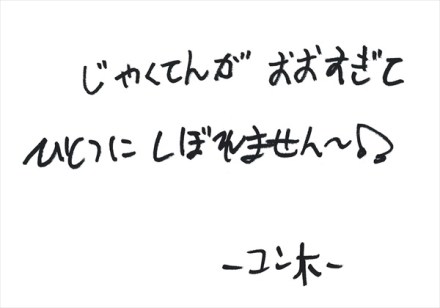 じゃくてんが おおすぎて
ひとつに しぼれません〜♪
－ユンホ－